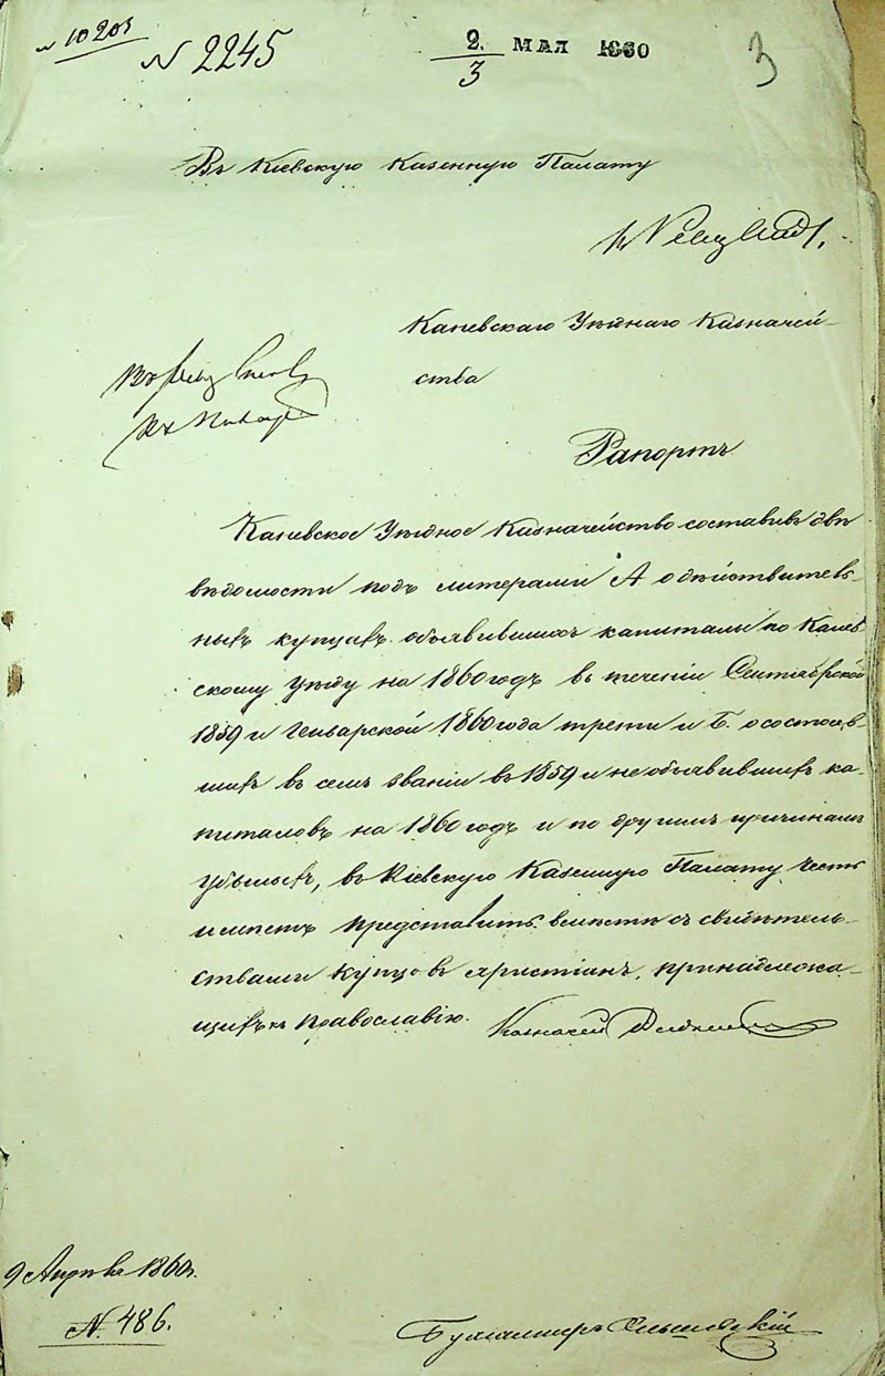 № 10203
№ 2245
2./3 МАЯ 1860
3
Въ Кіевскую Казенную Палату
Каневскаго Уѣднаго Казначей-
ства
Рапортъ
Каневское Уѣдное Казначейство составивъ двѣ
вѣдомости подъ литерами А о дѣйствитель-
ныхъ купцахъ объявившихъ капиталы по Канев-
скому уѣзду на 1860 годъ въ теченіи Сентябрской
1859 и Генварской 1860 года трети и Б. о состояв-
шихъ въ семъ званіи въ 1859 и не объявившихъ ка-
питаловъ на 1860 годъ и по другимъ причинамъ
убылыхъ, въ Кіевскую Казенную Палату честь
имѣетъ представить вмѣстѣ съ свидѣтель-
ствами купцовъ христіанъ, принадлежа-
щихъ къ православію. Казначей
9 Апрѣля 1860 г.
№ 486.
Бухгалтеръ